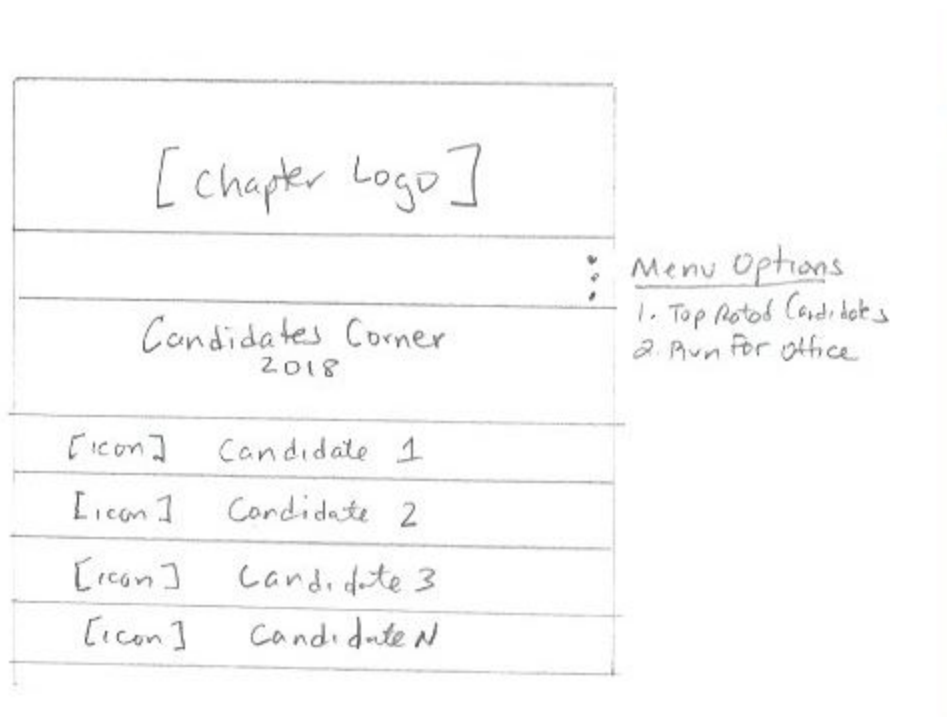 [Chapter Logo]
Menu Options
1. Top Rated Candidates
2. Run For Office
Candidates Corner
2018
[icon] Candidate 1
[icon] Candidate 2
[icon] Candidate 3
[icon] Candidate N